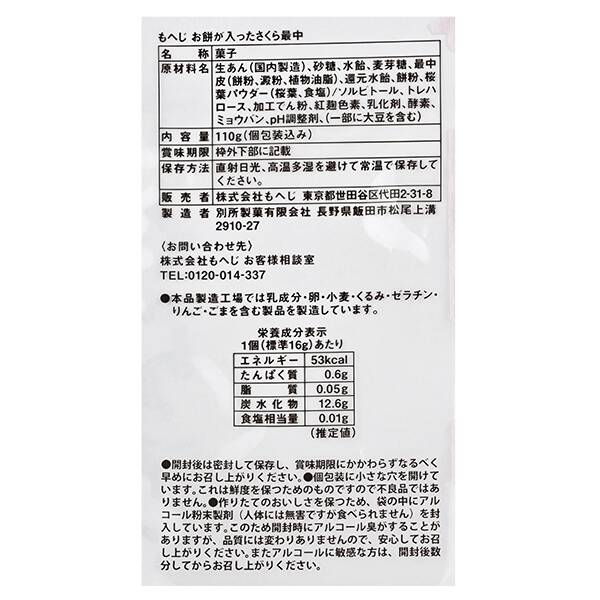 もへじ お餅が入ったさくら最中
名称 菓子
原材料名 生あん(国内製造)、砂糖、水飴、麦芽糖、最中
皮(餅粉、澱粉、植物油脂)、還元水飴、餅粉、桜
葉パウダー(桜葉、食塩)/ソルビトール、トレハ
ロース、加工でん粉、紅麹色素、乳化剤、酵素、
ミョウバン、pH調整剤、(一部に大豆を含む)
内容量 110g(個包装込み)
賞味期限 枠外下部に記載
保存方法 直射日光、高温多湿を避けて常温で保存して
ください。
販売者 株式会社もへじ 東京都世田谷区代田2-31-8
製造者 別所製菓有限会社 長野県飯田市松尾上溝
2910-27
〈お問い合わせ先〉
株式会社もへじ お客様相談室
TEL:0120-014-337
●本品製造工場では乳成分・卵・小麦・くるみ・ゼラチン・
りんご・ごまを含む製品を製造しています。
栄養成分表示
1個(標準16g)あたり
エネルギー 53kcal
たんぱく質 0.6g
脂質 0.05g
炭水化物 12.6g
食塩相当量 0.01g
(推定値)
●開封後は密封して保存し、賞味期限にかかわらずなるべく
早めにお召し上がりください。●個包装に小さな穴を開けて
います。これは鮮度を保つためのものですので不良品ではあ
りません。●作りたてのおいしさを保つため、袋の中にアルコ
ール粉末製剤(人体には無害ですが食べられません)を封
入しています。このため開封時にアルコール臭がすることが
ありますが、品質には変わりありませんので、安心してお召
し上がりください。またアルコールに敏感な方は、開封後数
分してからお召し上がりください。